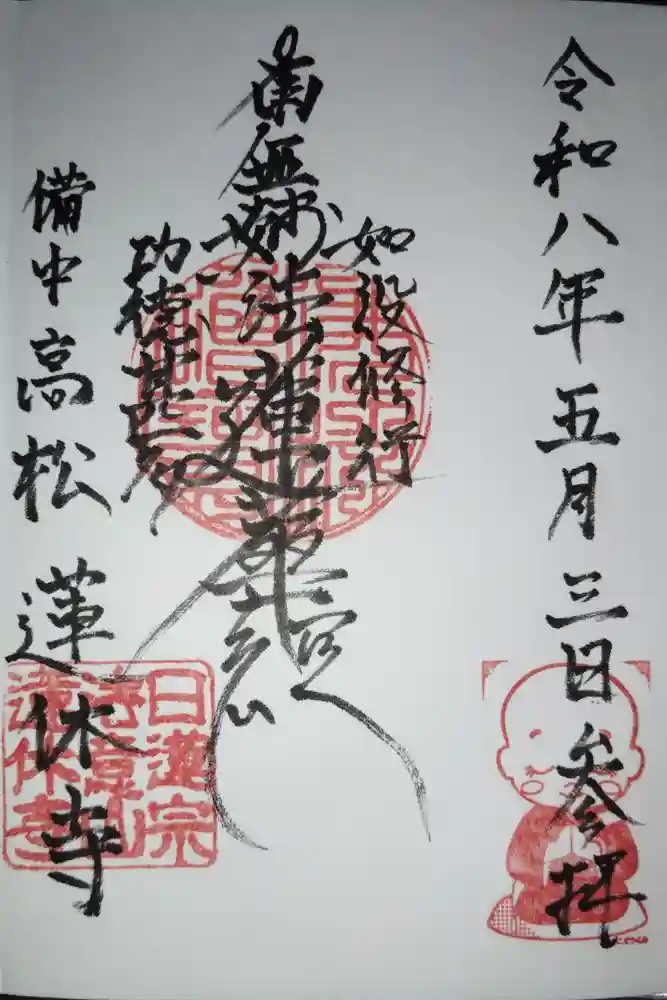 令和八年五月三日参拝
如設修行
南無妙法蓮華経
功徳甚多
備中高松
蓮休寺
日蓮宗
蓮休寺